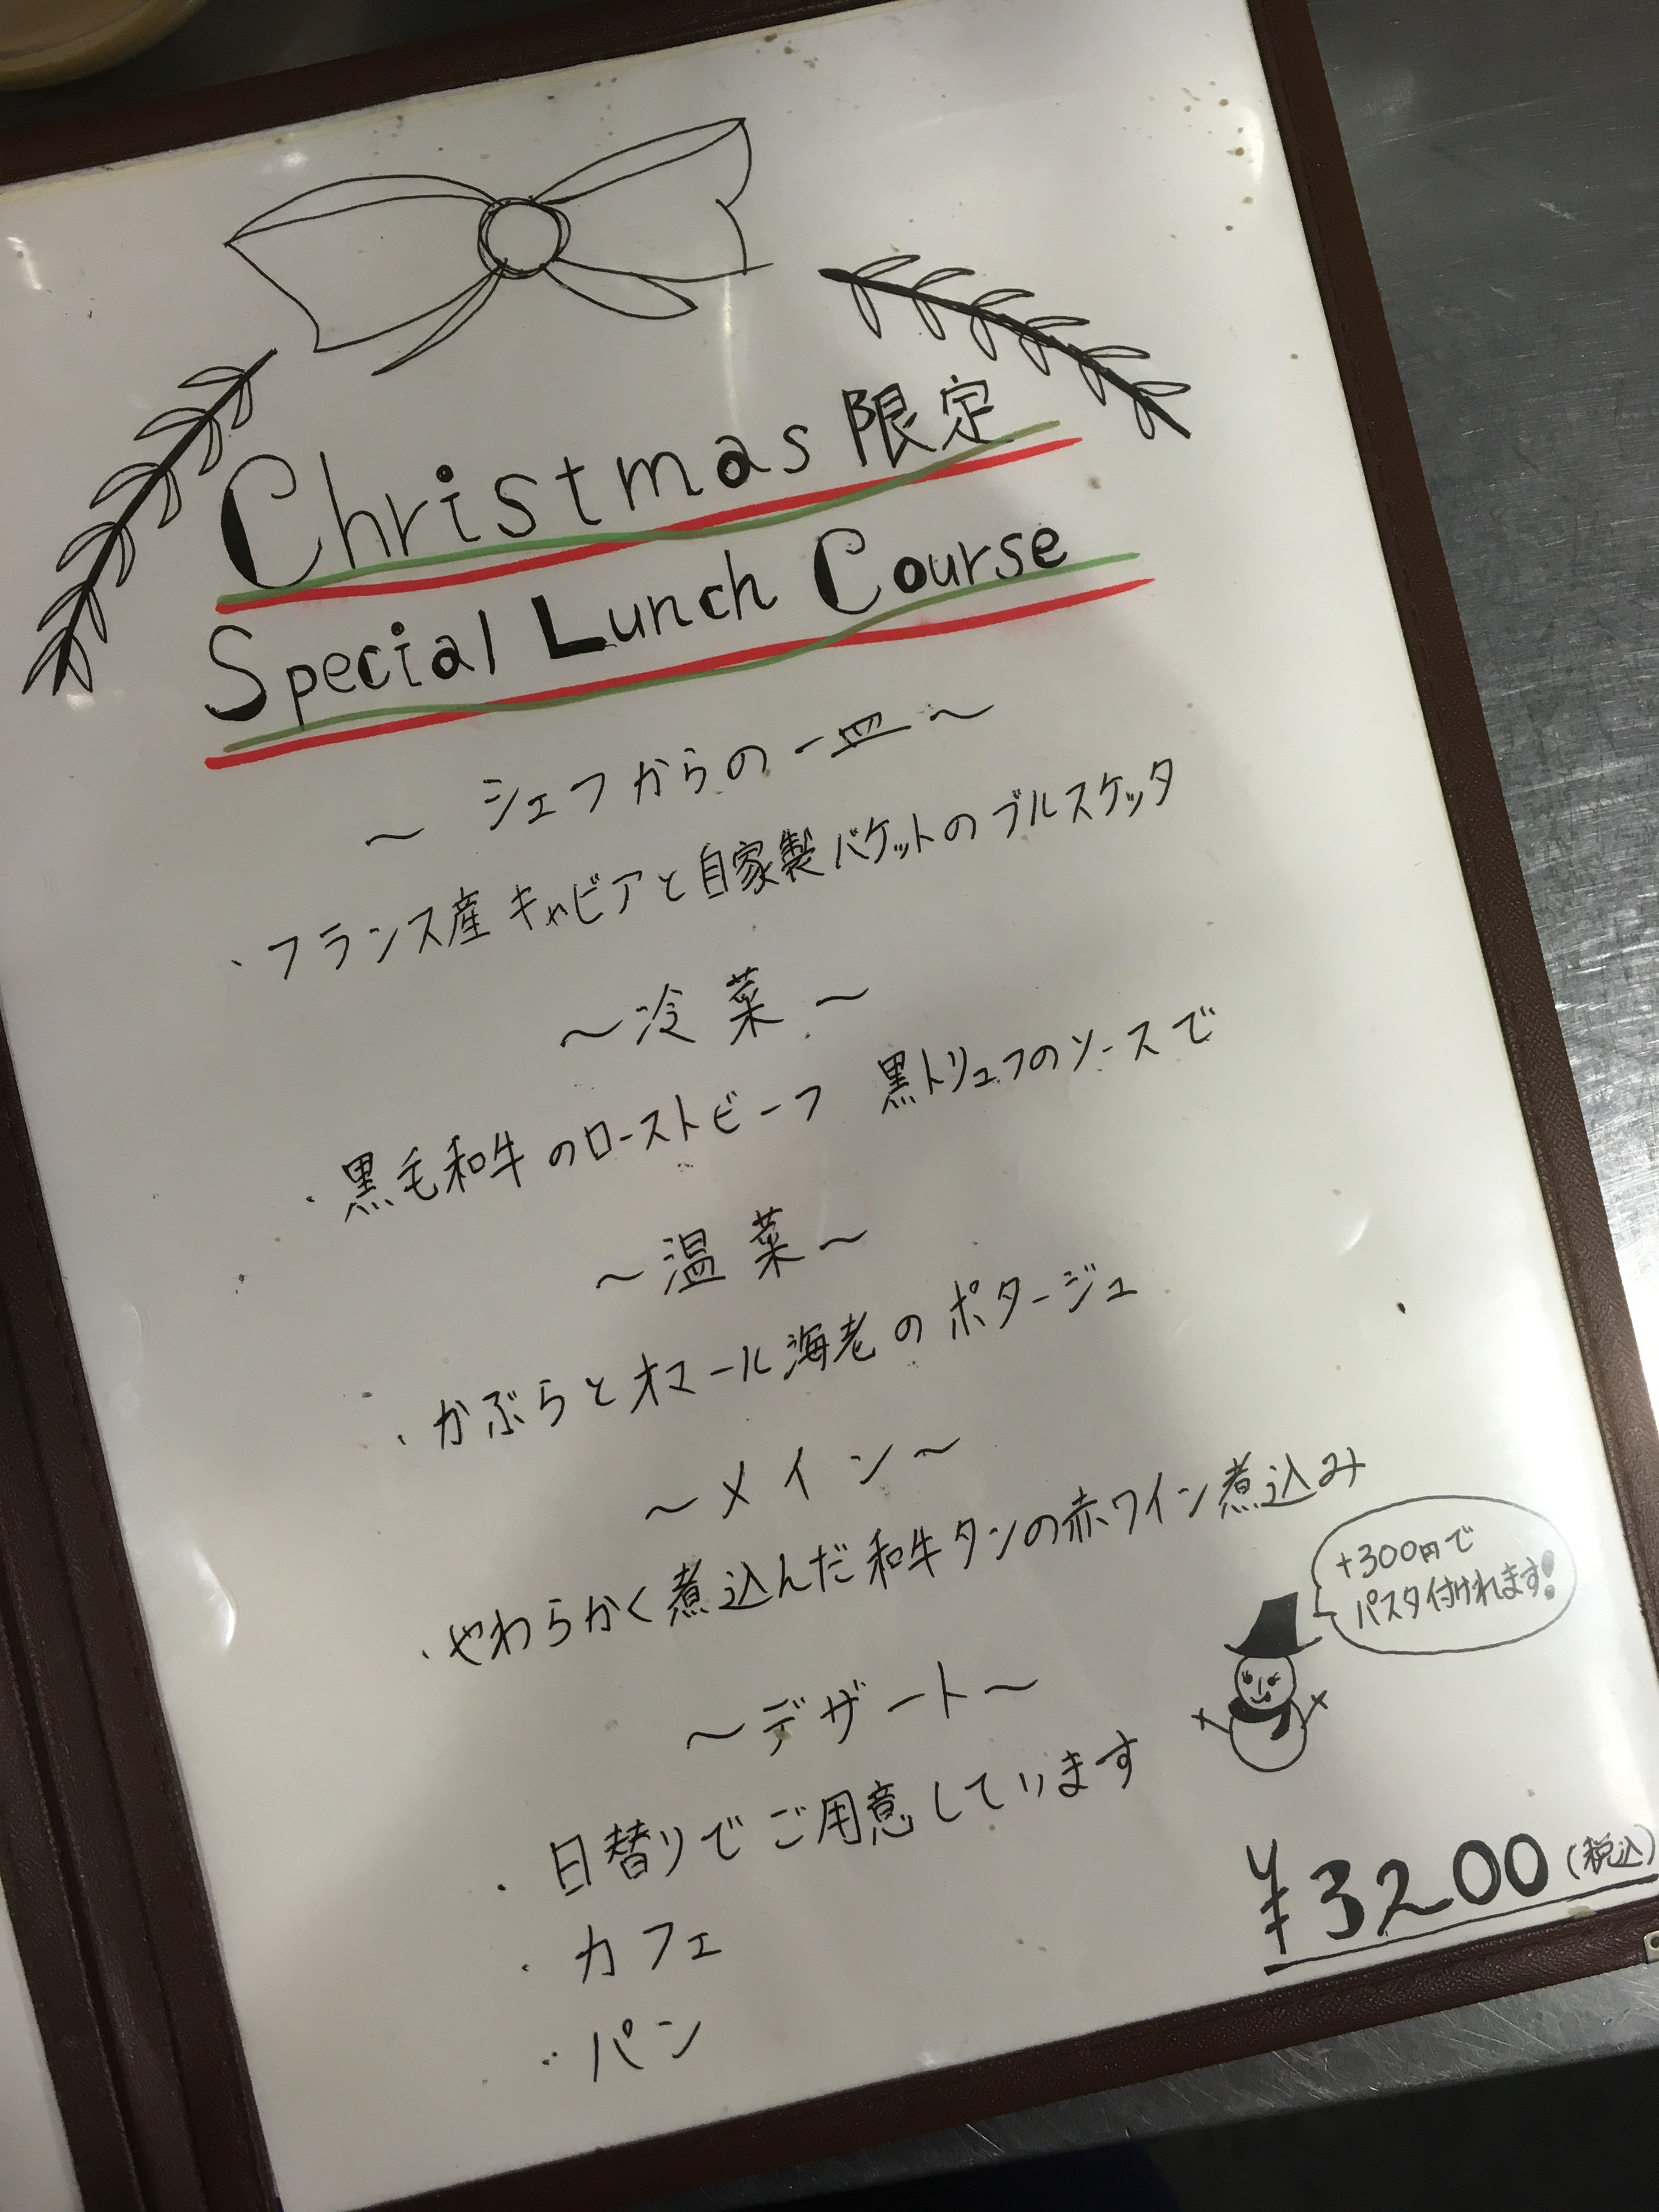 Christmas 限定
Special Lunch Course
～ シェフからの一皿～
・フランス産キャビアと自家製バケットのブルスケッタ
～冷菜～
・黒毛和牛のローストビーフ 黒トリュフのソースで
～温菜～
・かぶらとオマール海老のポタージュ
～メイン～
・やわらかく煮込んだ和牛タンの赤ワイン煮込み
+300円で
パスタ付けれます!!
～デザート～
・日替りでご用意しています
・カフェ
・パン
¥3200(税込)